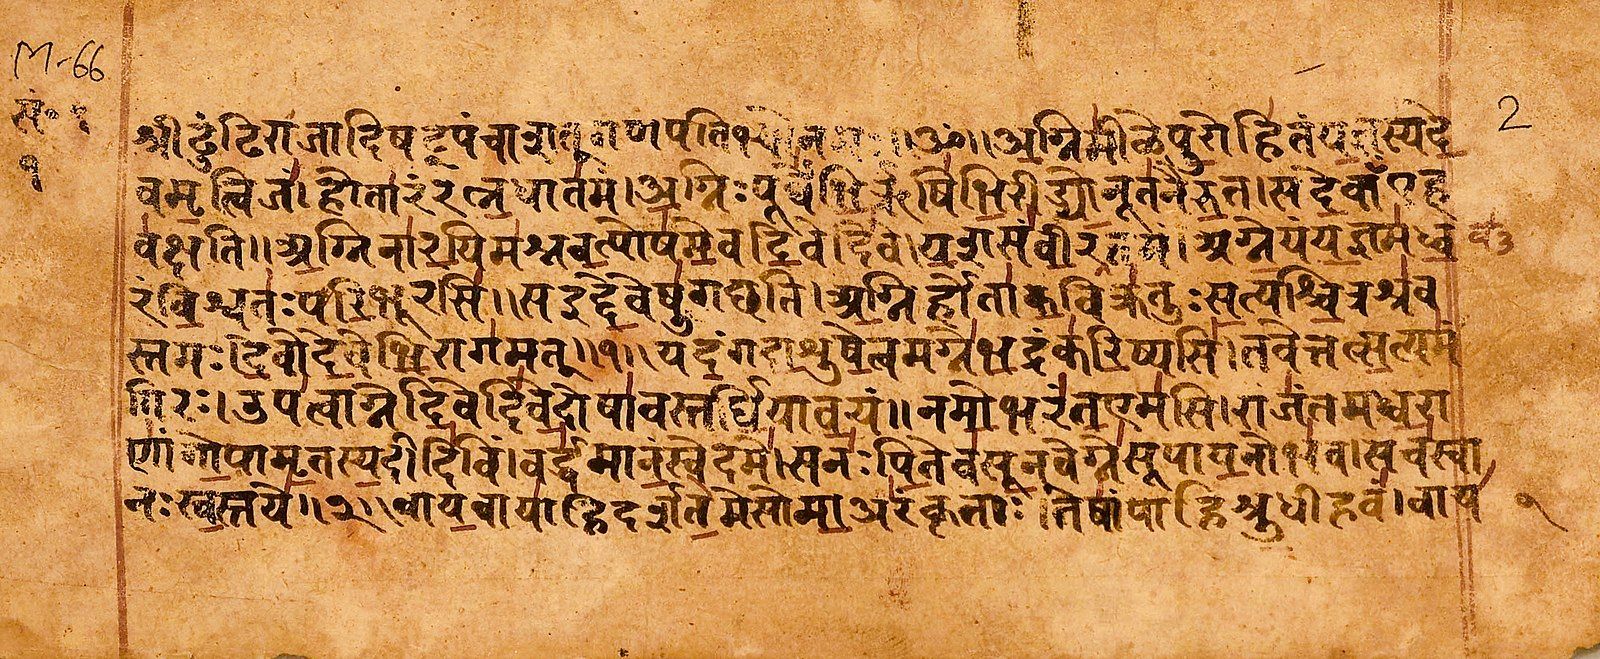 M-66
सं॰ १
१
2
श्रीढुंढिराजादिषट्पंचाशतूगणपतिभ्योनमः॥ॐ॥अग्निमीळेपुरोहितंयज्ञस्यदे
वमृत्विजं।होतारंरत्नधातमं।अग्निःपूर्वेभिर्ऋषिभिरीड्योनूतनैरुत।सदेवाँएह
वक्षति॥अग्निनारयिमश्नवत्पोषमेवदिवेदिवे।यशसंवीरवत्तमं।अग्नेयंयज्ञमध्व
रंविश्वतःपरिभूरसि॥सइद्देवेषुगछति।अग्निर्होताकविक्रतुःसत्यश्चित्रश्रव
स्तमः।देवोदेवेभिरागमत्॥१॥यदंगदाशुषेत्वमग्नेभद्रंकरिष्यसि।तवेत्तत्सत्यमं
गिरः।उपत्वाग्नेदिवेदिवेदोषावस्तर्धियावयं॥नमोभरंतएमसि।राजंतमध्वरा
णांगोपामृतस्यदीदिविं।वर्द्धमानंस्वेदमे।सनःपितेवसूनवेग्नेसूपायनोभव।सचस्वा
नःस्वस्तये॥२॥वायवायाहिदर्शतेमेसोमाअरंकृताः।तेषांपाहिश्रुधीहवं।वाय
१